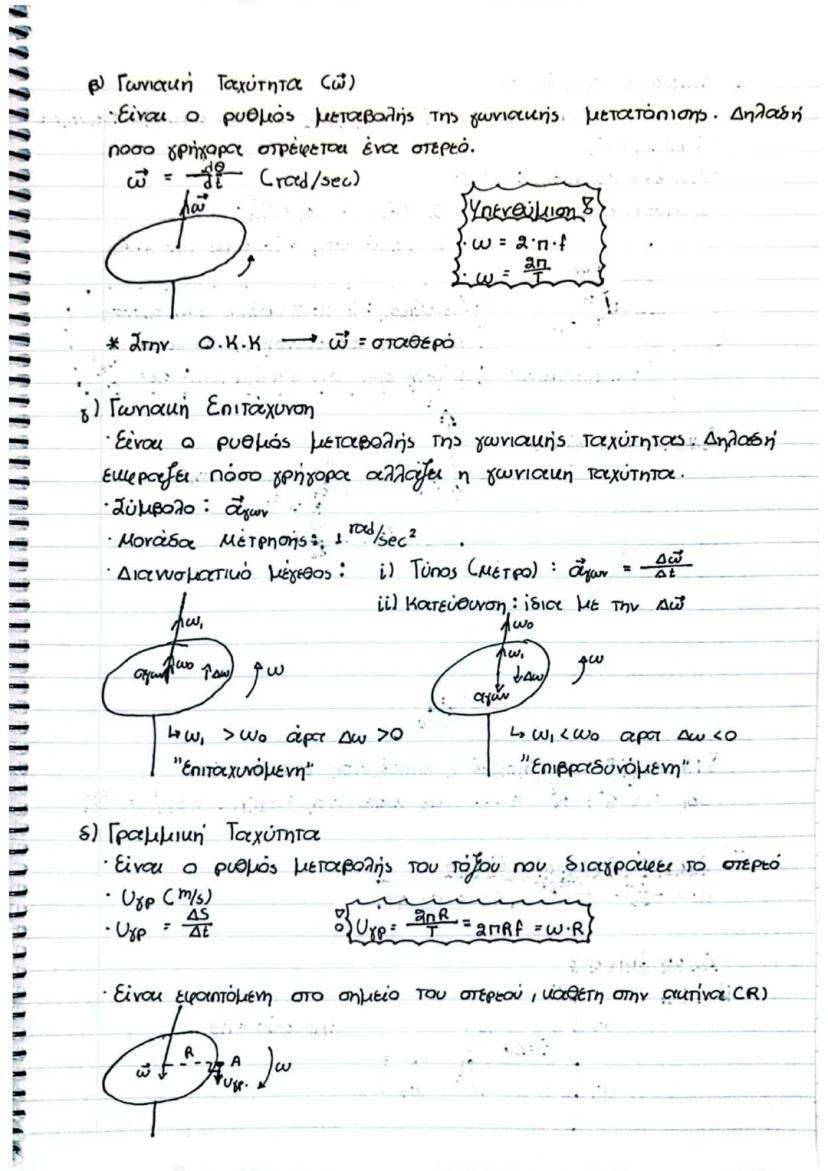 β) Γωνιακή Ταχύτητα (ω⃗)
·Είναι ο ρυθμός μεταβολής της γωνιακής μετατόπισης. Δηλαδή
ποσο γρήγορα στρέφεται ένα στερεό.
ω⃗ = dθ/dt (rad/sec)
ω⃗
Υπενθύμιση:
· ω = 2·π·f
· ω = 2π/T
* Στην Ο.Κ.Κ → ω⃗ = σταθερό
γ) Γωνιακή Επιτάχυνση
·Είναι ο ρυθμός μεταβολής της γωνιακής ταχύτητας. Δηλαδή
εκφράζει πόσο γρήγορα αλλάζει η γωνιακη ταχύτητα.
·Σύμβολο : α⃗γων
·Μονάδα Μέτρησης: 1 rad/sec²
·Διανυσματικό μέγεθος : i) Τύπος (μέτρο) : α⃗γων = Δω⃗/Δt
ii) Κατεύθυνση : ίδια με την Δω⃗
ω₁ ω₀ αγων ↑Δω ω
ω₀ ω₁ ↓Δω αγων ω
↳ ω₁ > ω₀ άρα Δω > 0
"Επιταχυνόμενη"
↳ ω₁ < ω₀ αρα Δω < 0
"Επιβραδυνόμενη"
δ) Γραμμική Ταχύτητα
·Είναι ο ρυθμός μεταβολής του τόξου που διαγράφει το στερεό
· Uγρ (m/s)
· Uγρ = ΔS/Δt
Uγρ = 2πR/T = 2πRf = ω·R
·Είναι εφαπτόμενη στο σημείο του στερεού, κάθετη στην ακτίνα (R)
ω⃗ R A Uγρ. ω